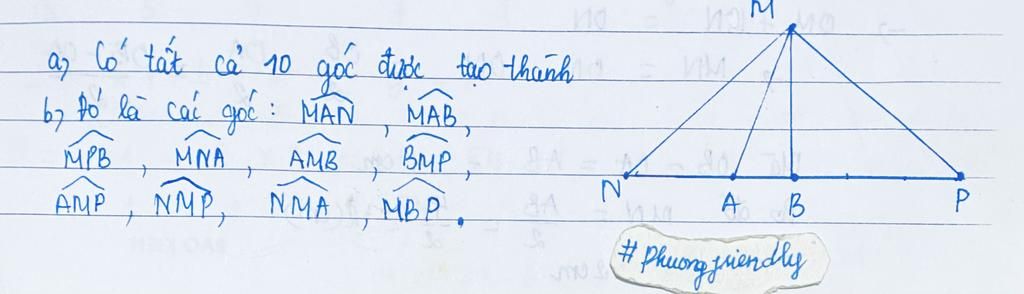 a, Có tất cả 10 góc được tạo thành
b, Đó là các góc: MAN, MAB,
MPB, MNA, AMB, BMP,
AMP, NMP, NMA, MBP.
M
N A B P
#phuongfriendly